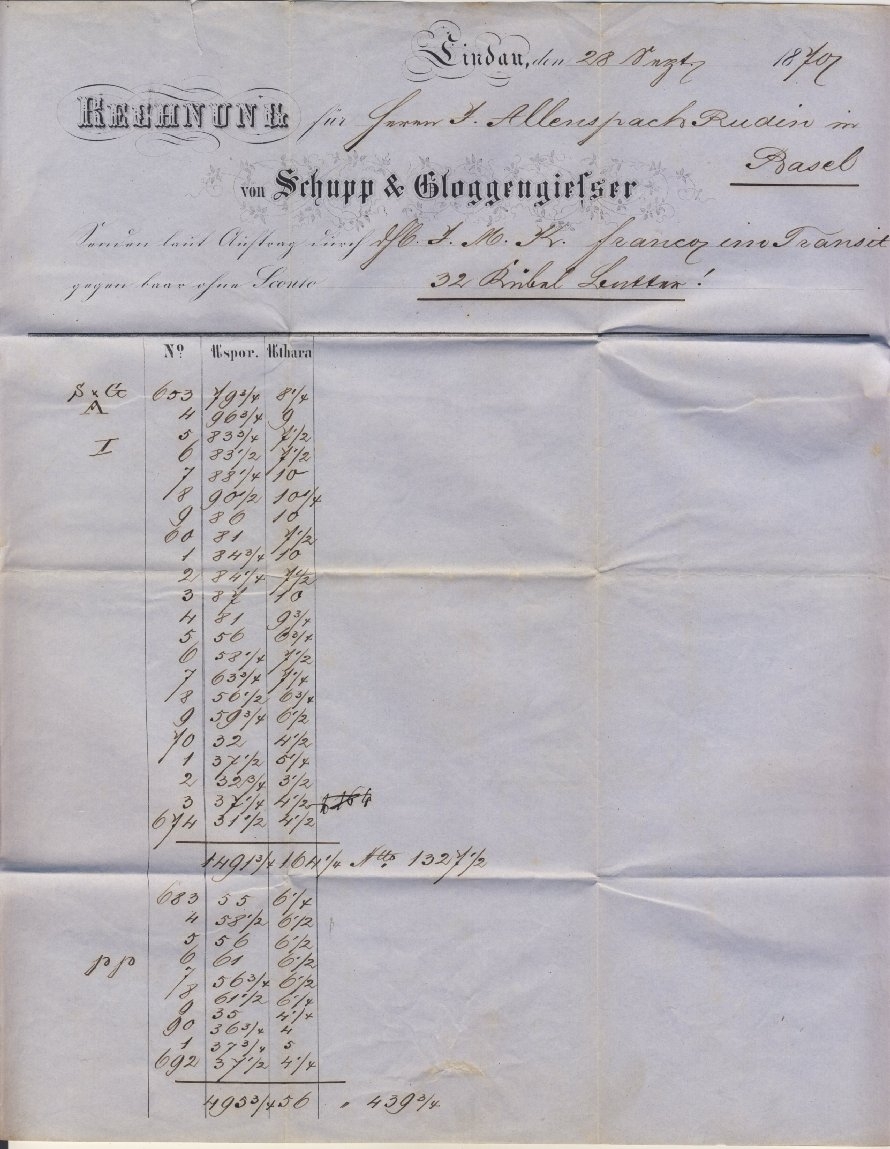 Lindau, den 28 Sept. 1870
RECHNUNG für Herrn J. Allenspach Rudin in
Basel
von Schupp & Gloggengiefser
Senden laut Auftrag durch J. M. Kr. franco im Transit
gegen baar ohne Sconto 32 Kübel Butter!
No. ℔spor. ℔thara
S & G 653 79 3/4 8 1/4
A 4 96 3/4 9
I 5 83 3/4 7 1/2
6 83 1/2 7 1/2
7 88 1/4 10
8 90 1/2 10 1/4
9 86 10
60 81 7 1/2
1 84 3/4 10
2 84 1/4 7 1/2
3 87 10
4 81 9 3/4
5 56 6 3/4
6 58 1/4 7 1/2
7 63 3/4 7 1/4
8 56 1/2 6 3/4
9 59 3/4 6 1/2
70 32 4 1/2
1 37 1/2 5 1/4
2 32 3/4 3 1/2
3 37 1/4 4 1/2
674 31 1/2 4 1/2
1491 3/4 164 1/4 Ntto 1327 1/2
683 55 6 1/4
4 58 1/2 6 1/2
5 56 6 1/2
pp 6 61 6 1/2
7 56 3/4 6 1/2
8 61 1/2 6 1/4
9 35 4 1/4
90 36 3/4 4
1 37 3/4 5
692 37 1/2 4 1/4
495 3/4 56 " 439 3/4